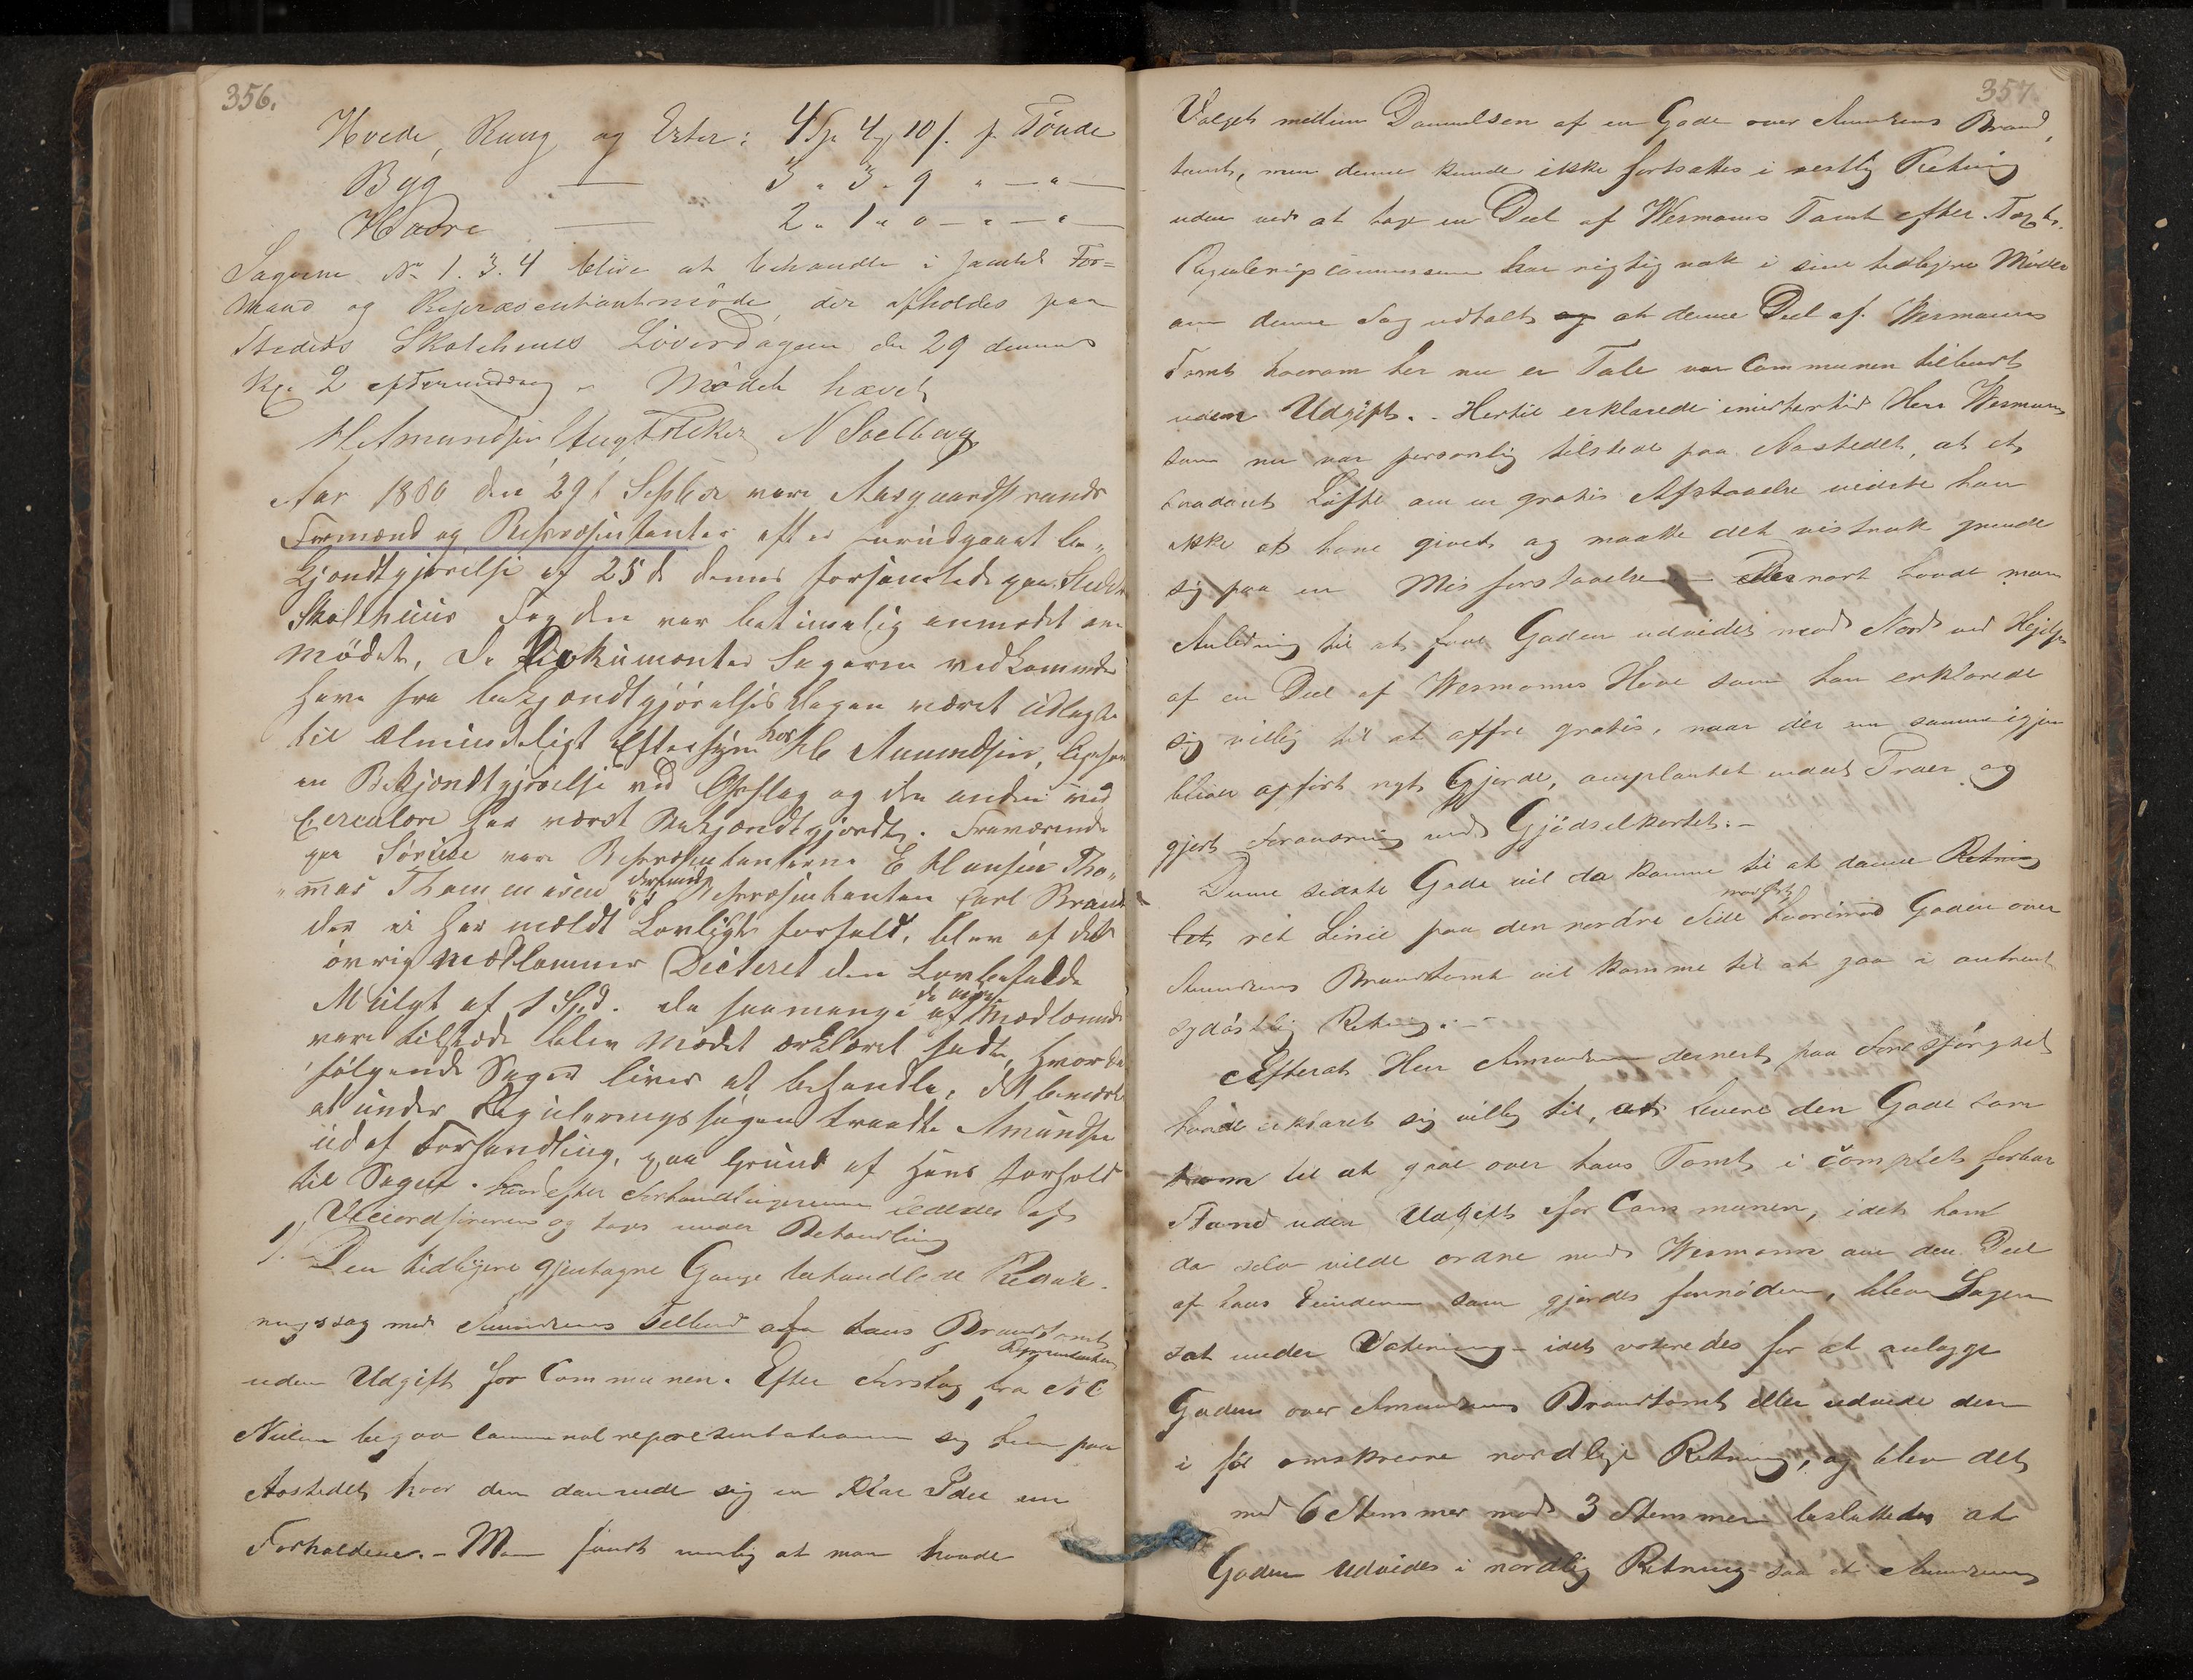 356.
Hvede, Rug og Erter: 4 Sp 4 10 /. p Tønde
Byg — 3 " 3 " 9 " — " —
Havre — 2 " 1 " 0 — " — " —
Sagerne No 1. 3. 4 blive at behandle i samlet For=
mand og Repræsentantmøde, der afholdes paa
Stedets Skolehuus Løverdagen den 29 dennes
Kl. 2 eftermiddag. Mødet hævet
H Amundsen Aug Falcker N Soelberg
Aar 1860 den 29/ Septbr vare Aasgaardstrands
Formænd og Repræsentanter efter forudgaaet be-
kjendtgjørelse af 25de dennes forsamlede paa Stedets
Skolehuus Fogden var betimelig anmodet om
Mødet, De Dokumenter Sagerne vedkommende
have fra bekjendtgjørelses Dagen været udlagte
til almindeligt Eftersyn hos H Amundsen,
en Bekjendtgjørelse ved Opslag og den anden ved
Circulære har været Bekjendtgjordt. Fraværende
paa Søreise var Repræsentanterne E Hansen Tho-
"mas Thommesen derimod Repræsentanten Carl Brandt
der ei har meldt Lovligt forfald, blev af de
øvrig Medlemmer Dicteret den Lovbefalede
Mulct af 1 Spd. da saamange af de øvrige Medlemmer
vare tilstede blev Mødet erklæret sadt, hvorda
følgende Sager bliver at behandle, det bemærkes
at under Reguleringssagen traadte Amundsen
ud af Forhandling, paa Grund af Hans forhold
til Sagen. hvorefter Forhandlingerne lededes af
Viceordføreren og toges under Behandling
1/. Den tidligere gjentagne Gange behandlede Regule-
ringssag med Amundsens Tilbud af hans Brandtomt
uden Udgift for Communen. Efter Forslag fra Repræsentanten N C
Nielsen begav Communalrepresentationen sig hen paa
Aastedet hvor den dannede sig en klar Idee om
Forholdene. – Man fandt nemlig at man havde
357.
Valget mellem Dannelsen af en Gade over Amundsens Brand,
tomt, men denne kunde ikke fortsættes i vestlig Retning
uden ved at tage en Deel af Wermanns Tomt efter Taxt.
Reguleringscommissionen har rigtignok i sine tidligere Møder
om denne Sag udtalt og at denne Deel af Wermanns
Tomt hvorom her nu er Tale var Communen tilbudt
uden Udgift. – Hertil erklærede imidlertid Herr Wermann
som nu var personlig tilstede paa Aastedet, at et
saadant Løfte om en gratis Afstaaelse vidste han
ikke at have givet og maatte det vistnok grunde
sig paa en Misforstaaelse — Dernæst havde man
Anledning til at faae Gaden udvidet mod Nord ved Hjelp
af en Deel af Wermanns Have som han erklærede
sig villig til at offre gratis, naar der om samme igjen
bliver opført nyt Gjerde, omplantet endeel Træer og
gjort Forandring med Gjødselkortet. –
Denne sidste Gade vil da komme til at danne Retning
let ret Linie paa den nordre Side hvorimod Gaden over
Amundsens Brandtomt vil komme til at gaa i omtrent
sydøstlig Retning. –
Efterat Herr Amundsen dernest paa Forespørgsel
havde erklæret sig villig til, at levere den Gade som
kom til at gaae over hans Tomt i complet forsvar
Stand uden Udgift for Communen, idet han
da selv vilde ordne med Wermann om den Deel
af hans Eiendom som gjordes fornøden, blev Sagen
sat under Votering – idet voteredes for at anlægge
Gaden over Amundsens Brandtomt eller udvide den
i før omskrevne nordlige Retning, og blev det
med 6 Stemmer mod 3 Stemmer besluttedes at
Gaden udvides i nordlig Retning saa at Amundsens